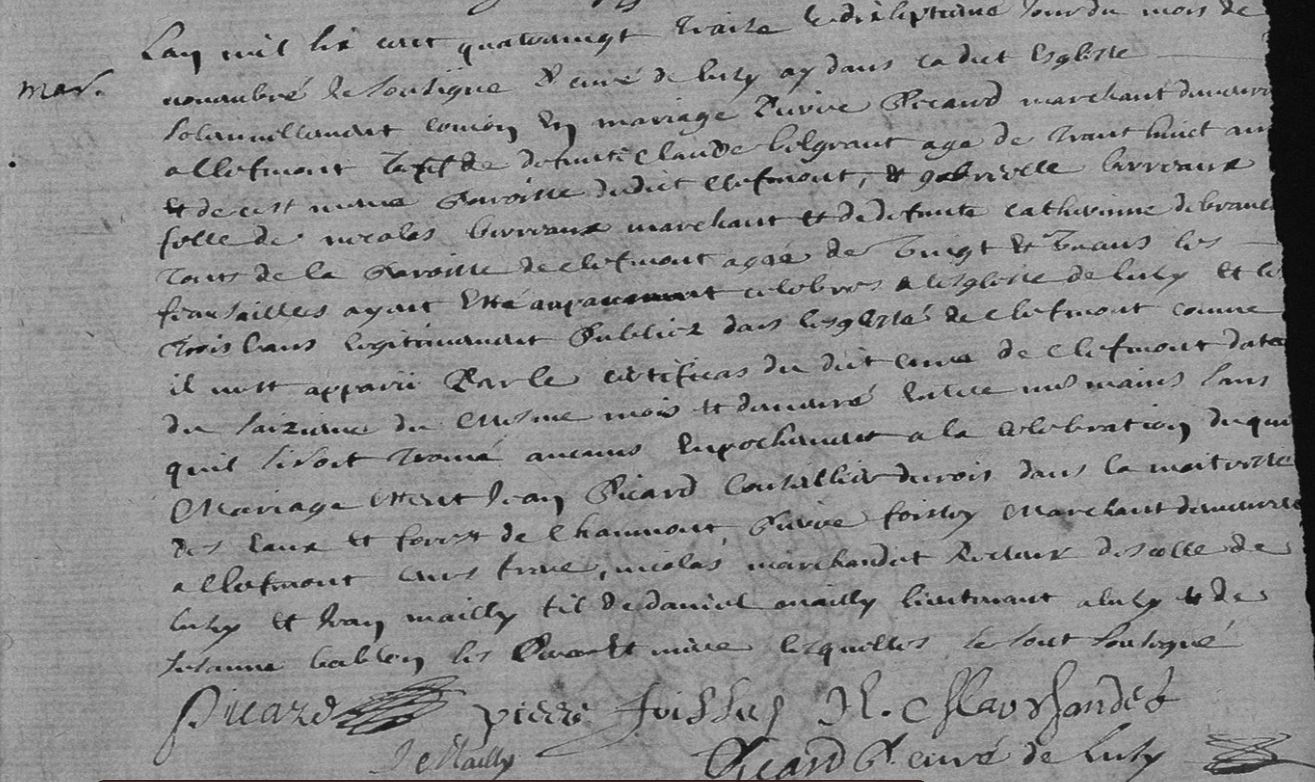 mar.
Lan mil six cent quatrevingt traize le dixseptieme Jour du mois de
nouembre Je soutsigne P curé de luzy ay dans ladict Esglise
solannellemant conioin En mariage Pierre Picard marchant demeurant
a Clefmont de defuncte Claude belgrant age de trant huict an
et de cest mesme Paroisse dudict Clefmont, et gabrielle
fille de nicolas marchant et de defunte catherinne
tous de la Paroisse de Clefmont agée de vingt et les
fiansailles ayant Esté auparauant celebres a lesglise de luzy et les
trois bans legitimemant Publiez dans lesglise de Clefmont comme
il mest apparu Par le certificas du dict curé de Clefmont daté
du saizieme du mesme mois et demeuré Entre mes mains sans
quil se soit trouué aucuns Enpechemant a la celebration duquel
Mariage Jean Picard Conseillier du rois dans la maitrisse
des Eaux et forest de Chaumont, Pierre foissey Marchant demeurant
a Clefmont frere, nicolas marchandet Recteur descolle de
luzy et Jean mailly fil de daniel mailly lieutenant a luzy et de
susanne les Pere et mere lesquelles se sont soutsigné
Picard pierre foissey N. Marchandet
J e Mailly Picard P curé de Luzy